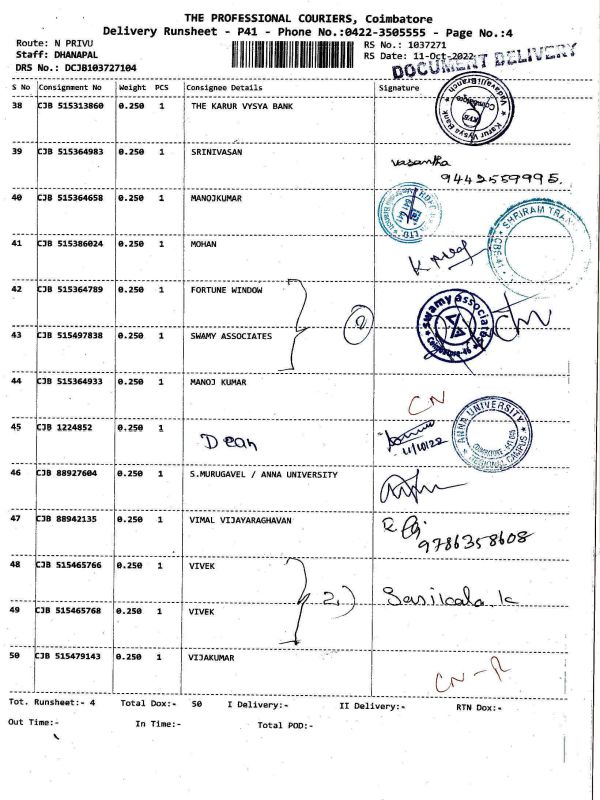 THE PROFESSIONAL COURIERS, Coimbatore
Delivery Runsheet - P41 - Phone No.:0422-3505555 - Page No.:4
Route: N PRIVU
RS No.: 1037271
Staff: DHANAPAL
RS Date: 11-Oct-2022
DRS No.: DCJB103727104
DOCUMENT DELIVERY
S No Consignment No Weight PCS Consignee Details Signature
38 CJB 515313860 0.250 1 THE KARUR VYSYA BANK
Karur Vysya Bank
39 CJB 515364983 0.250 1 SRINIVASAN
vasantha
9442559995.
40 CJB 515364658 0.250 1 MANOJKUMAR
SHRIRAM
41 CJB 515386024 0.250 1 MOHAN
42 CJB 515364789 0.250 1 FORTUNE WINDOW
swamy associates
Coimbatore-46
43 CJB 515497838 0.250 1 SWAMY ASSOCIATES
44 CJB 515364933 0.250 1 MANOJ KUMAR
CN
45 CJB 1224852 0.250 1 Dean
11/10/22
ANNA UNIVERSITY
REGIONAL CAMPUS
46 CJB 88927604 0.250 1 S.MURUGAVEL / ANNA UNIVERSITY
47 CJB 88942135 0.250 1 VIMAL VIJAYARAGHAVAN
9786358608
48 CJB 515465766 0.250 1 VIVEK
2) Sasikala.k
49 CJB 515465768 0.250 1 VIVEK
50 CJB 515479143 0.250 1 VIJAKUMAR
CN-R
Tot. Runsheet:- 4 Total Dox:- 50 I Delivery:- II Delivery:- RTN Dox:-
Out Time:- In Time:- Total POD:-